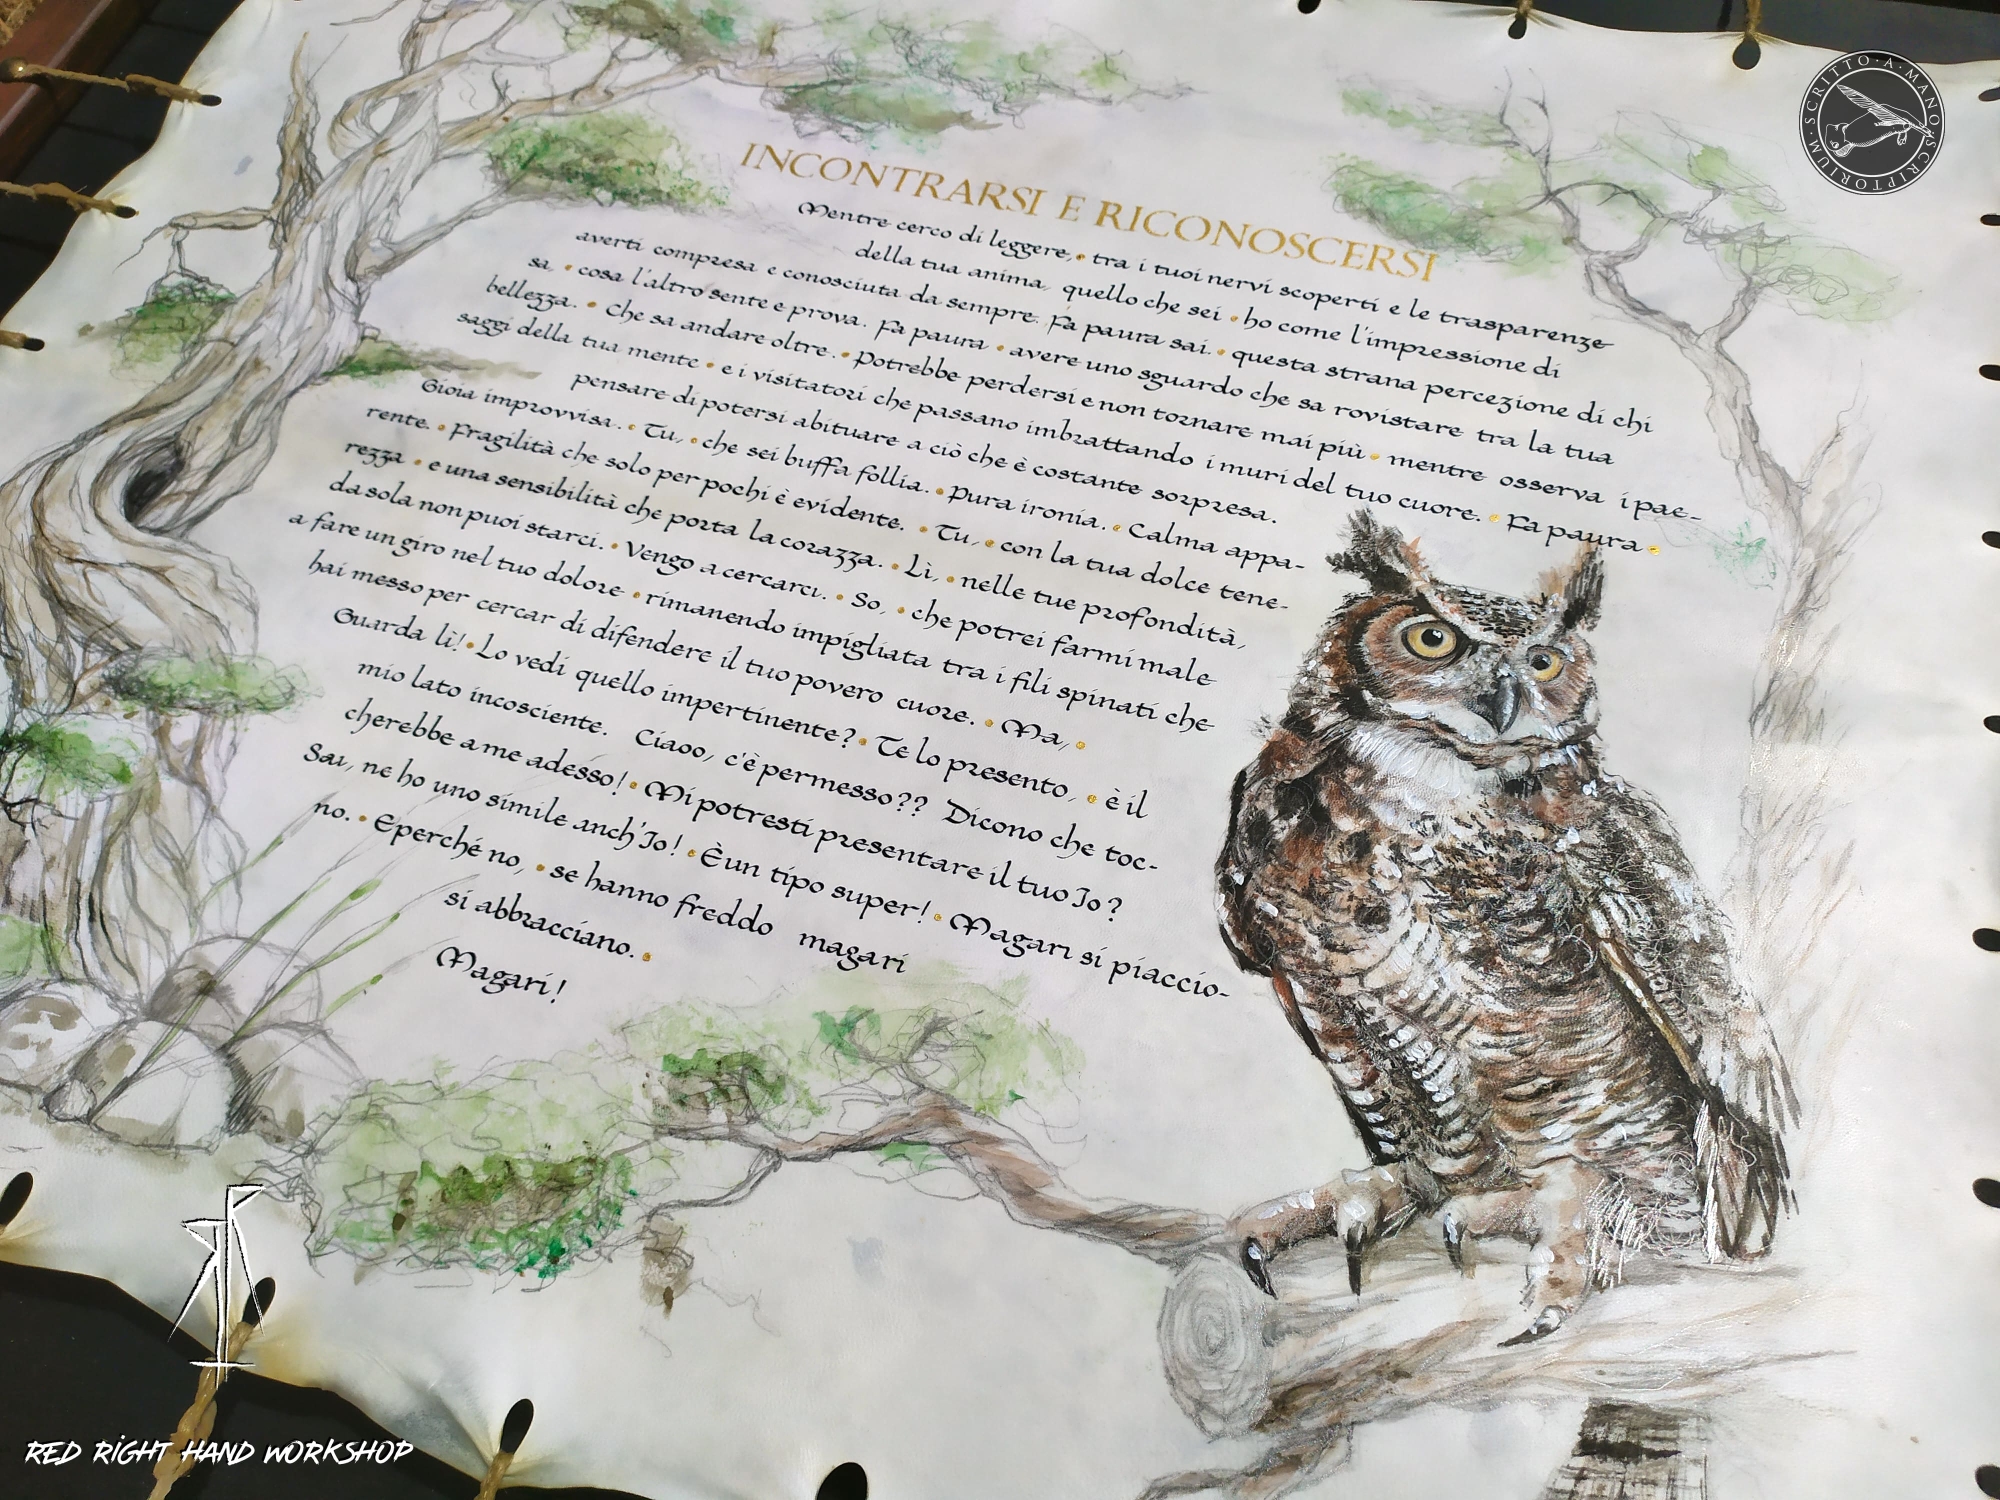 INCONTRARSI E RICONOSCERSI
Mentre cerco di leggere, • tra i tuoi nervi scoperti e le trasparenze
della tua anima, quello che sei • ho come l'impressione di
averti compresa e conosciuta da sempre. Fa paura sai. • questa strana percezione di chi
sa, • cosa l'altro sente e prova. Fa paura • avere uno sguardo che sa rovistare tra la tua
bellezza. • Che sa andare oltre. • Potrebbe perdersi e non tornare mai più • mentre osserva i pae-
saggi della tua mente • e i visitatori che passano imbrattando i muri del tuo cuore. • Fa paura •
pensare di potersi abituare a ciò che è costante sorpresa.
Gioia improvvisa. • Tu, • che sei buffa follia. • Pura ironia. • Calma appa-
rente. • Fragilità che solo per pochi è evidente. • Tu, • con la tua dolce tene-
rezza • e una sensibilità che porta la corazza. • Lì, • nelle tue profondità,
da sola non puoi starci. • Vengo a cercarci. • So, • che potrei farmi male
a fare un giro nel tuo dolore • rimanendo impigliata tra i fili spinati che
hai messo per cercar di difendere il tuo povero cuore. • Ma, •
Guarda lì! • Lo vedi quello impertinente? • Te lo presento, • è il
mio lato incosciente. Ciaoo, c'è permesso?? Dicono che toc-
cherebbe a me adesso! • Mi potresti presentare il tuo Io?
Sai, ne ho uno simile anch'Io! • È un tipo super! • Magari si piaccio-
no. • E perché no, • se hanno freddo magari
si abbracciano. •
Magari!
SCRITTO · A · MANO · SCRIPTORIUM ·
RED RIGHT HAND WORKSHOP